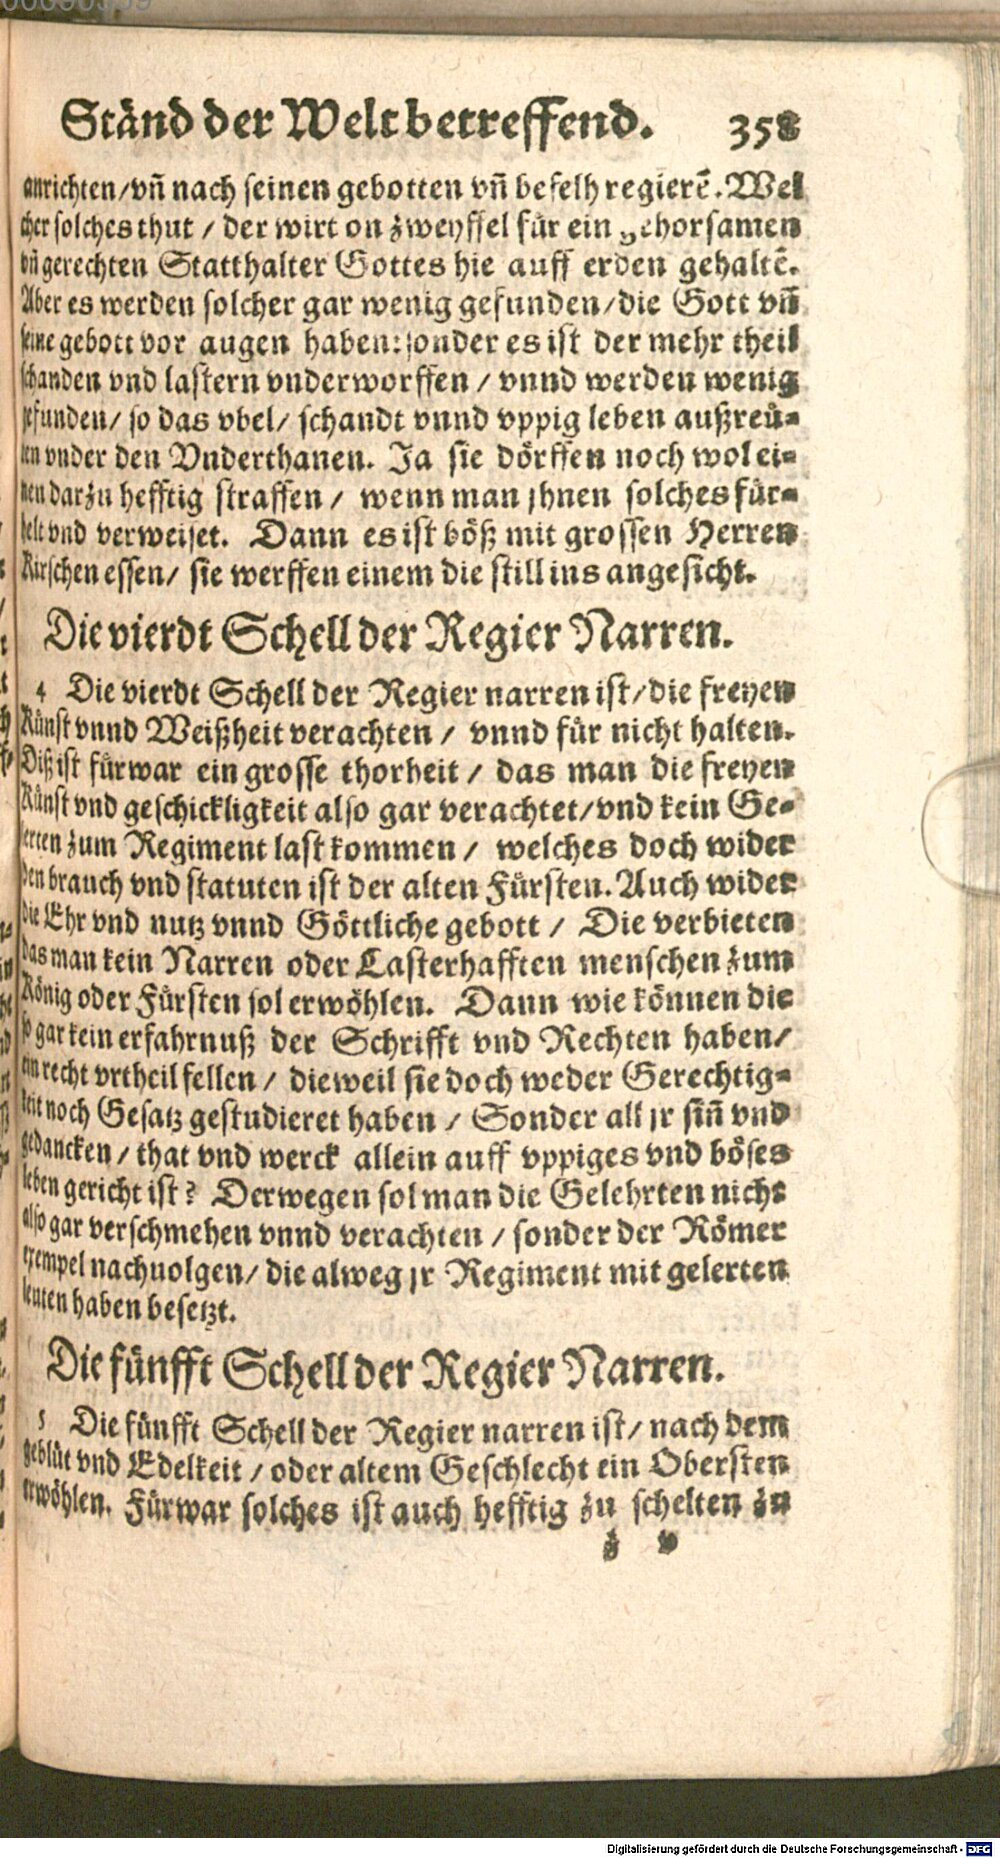 Ständ der Welt betreffend. 358
anrichten/vñ nach seinen gebotten vñ befelh regierẽ. Wel
cher solches thut / der wirt on zweyffel für ein gehorsamen
vñ gerechten Statthalter Gottes hie auff erden gehaltẽ.
Aber es werden solcher gar wenig gefunden/die Gott vñ
seine gebott vor augen haben: sonder es ist der mehr theil
schanden vnd lastern vnderworffen / vnnd werden wenig
gefunden/ so das vbel/ schandt vnnd vppig leben außreü-
ten vnder den Vnderthanen. Ja sie dörffen noch wol ei-
nen darzu hefftig straffen / wenn man jhnen solches für-
helt vnd verweiset. Dann es ist böß mit grossen Herren
Kirschen essen/ sie werffen einem die still ins angesicht.
Die vierdt Schell der Regier Narren.
4 Die vierdt Schell der Regier narren ist/die freyen
Künst vnnd Weißheit verachten / vnnd für nicht halten.
Diß ist fürwar ein grosse thorheit / das man die freyen
Künst vnd geschickligkeit also gar verachtet/vnd kein Ge-
lerten zum Regiment last kommen / welches doch wider
den brauch vnd statuten ist der alten Fürsten. Auch wider
die Ehr vnd nutz vnnd Göttliche gebott / Die verbieten
das man kein Narren oder Lasterhafften menschen zum
König oder Fürsten sol erwöhlen. Dann wie können die
so gar kein erfahrnuß der Schrifft vnd Rechten haben/
ein recht vrtheil fellen / dieweil sie doch weder Gerechtig-
keit noch Gesatz gestudieret haben / Sonder all jr siñ vnd
gedancken / that vnd werck allein auff vppiges vnd böses
leben gericht ist? Derwegen sol man die Gelehrten nicht
also gar verschmehen vnnd verachten / sonder der Römer
exempel nachuolgen/ die alweg jr Regiment mit gelerten
leuten haben besetzt.
Die fünfft Schell der Regier Narren.
5 Die fünfft Schell der Regier narren ist/ nach dem
geblüt vnd Edelkeit / oder altem Geschlecht ein Obersten
erwöhlen. Fürwar solches ist auch hefftig zu schelten zu
v
Digitalisierung gefördert durch die Deutsche Forschungsgemeinschaft - DFG